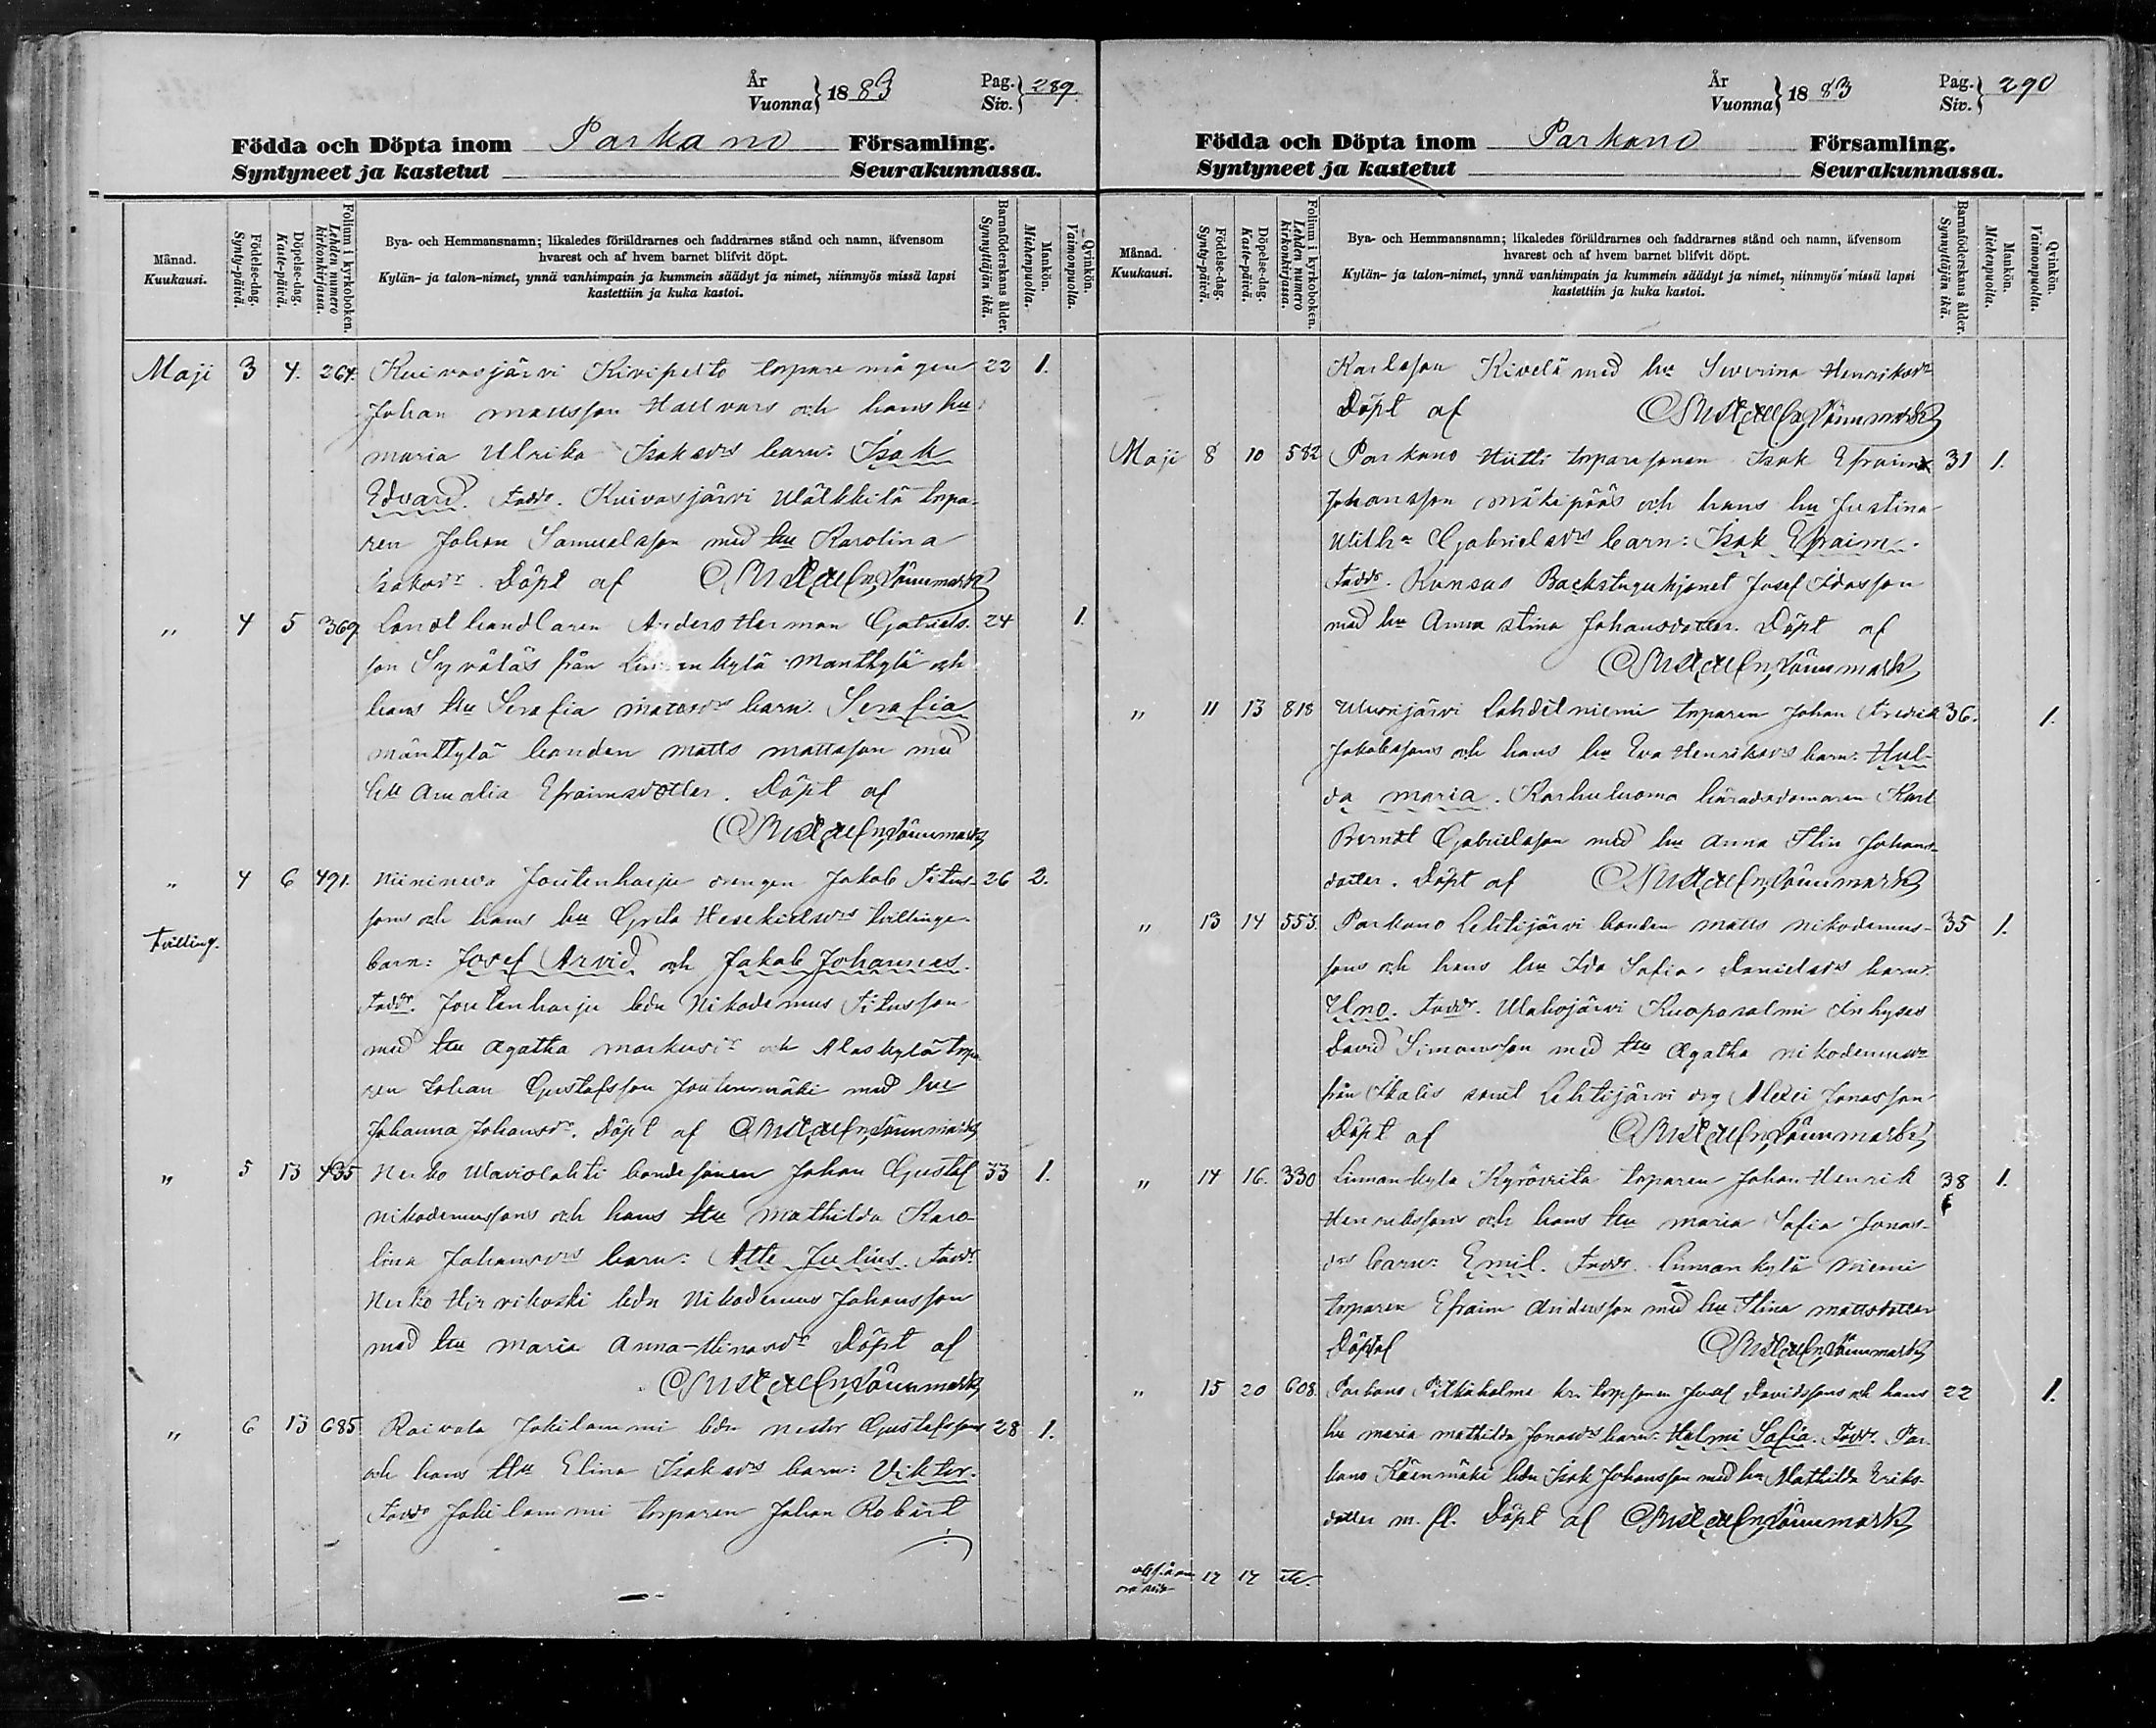 År
Vuonna } 1883
Pag.
Siv. } 289.
Födda och Döpta inom Parkano Församling.
Syntyneet ja kastetut Seurakunnassa.
Månad.
Kuukausi.
Födelse-dag.
Synty-päivä.
Döpelse-dag.
Kaste-päivä.
Folium i kyrkoboken.
Lehden numero kirkonkirjassa.
Bya- och Hemmansnamn; likaledes föräldrarnes och faddrarnes stånd och namn, äfvensom
hvarest och af hvem barnet blifvit döpt.
Kylän- ja talon-nimet, ynnä vanhimpain ja kummein säädyt ja nimet, niinmyös missä lapsi
kastettiin ja kuka kastoi.
Barnaföderskans ålder.
Synnyttäjän ikä.
Mankön.
Miehenpuolia.
Qvinkön.
Vaimonpuolia.
Maji 3 4. 264. Kuivasjärvi Kivipelto torpare mågen 22 1.
Johan mattsson Hallvars och hans hu
maria Ulrika Isaksdrs barn: Isak
Edvard. Faddr. Kuivasjärvi torpa-
ren Johan Samuelsson med hu Karolina
Isaksdr. Döpt af
" 4 5 369. Landthandlaren Anders Herman Gabriels- 24 1.
son från kylä Manskylä och
hans hu Serafia barn: Serafia
mänttylä bonden matts mattsson med
hu Amalia Efraimsdotter. Döpt af
" 4 6 491. Niinineva Joutenharju drengen Jakob Titus- 26 2.
sons och hans hu Greta Hesekielsdrs tvillinge-
Tvilling.
barn: Josef Arvid och Jakob Johannes.
Faddr. Joutenharju bdn Nikodemus Titusson
med hu Agatha markusdr och Alaskylä torpa
ren Johan Gustafsson Joutenmäki med hu
Johanna Johansdr. Döpt af
" 5 13 435 Nerko bondesonen Johan Gustaf 33 1.
Nikodemussons och hans hu Mathilda Karo-
lina Johansdrs barn: Atte Julius. Faddr.
Nerko Hirvikoski bdn Nikodemus Johansson
med hu Maria Anna-Stinasdr Döpt af
" 6 13 685 Raivala Jokilammi bdn Nestor Gustafssons 28 1.
och hans hu Elina Isaksdrs barn: Viktor.
Faddr Jokilammi torparen Johan Robert
År
Vuonna } 1883
Pag.
Siv. } 290
Födda och Döpta inom Parkano Församling.
Syntyneet ja kastetut Seurakunnassa.
Månad.
Kuukausi.
Födelse-dag.
Synty-päivä.
Döpelse-dag.
Kaste-päivä.
Folium i kyrkoboken.
Lehden numero kirkonkirjassa.
Bya- och Hemmansnamn; likaledes föräldrarnes och faddrarnes stånd och namn, äfvensom
hvarest och af hvem barnet blifvit döpt.
Kylän- ja talon-nimet, ynnä vanhimpain ja kummein säädyt ja nimet, niinmyös missä lapsi
kastettiin ja kuka kastoi.
Barnaföderskans ålder.
Synnyttäjän ikä.
Mankön.
Miehenpuolia.
Qvinkön.
Vaimonpuolia.
Karlsson Kivelä med hu Severina Henriksdr
Döpt af
Maji 8 10 582 Parkano Hütti torparesonen Isak Efraim 31 1.
Johansson mäkipääs och hans hu Justina
Wilha Gabrielsdrs barn: Isak Efraim.
Faddr. Kansas Backstuguhjonet Josef Idasson
med hu Anna Stina Johansdotter. Döpt af
" 11 13 818 Vuorijärvi Lahdelniemi torparen Johan Fredrik 36. 1.
Jakobssons och hans hu Eva Henriksdrs barn: Hul-
da Maria. Karhuluoma häradsdomaren Karl
Berndt Gabrielsson med hu Anna Stin Johans-
dotter. Döpt af
" 13 14 553. Parkano Lehtijärvi bonden Matts Nikodemus- 35 1.
sons och hans hu Ida Sofia Danielsdrs barn:
Uno. Faddr. Vahojärvi Kuoposalmi Inhyses
David Simonsson med hu Agatha Nikodemusdr
från Ikalis samt Lehtijärvi drg Alexii Jonasson
Döpt af
" 14 16. 330 Linnankylä Kyröviita torparen Johan Henrik 38 1.
Henrikssons och hans hu Maria Sofia Jonas-
drs barn: Emil. Faddr. Linnankylä Niemi
torparen Efraim Andersson med hu Stina mattsdotter
Döpt af
" 15 20 608. Parkano Pitkäkolmi torpsonen Josef Davidssons och hans 22 1.
hu maria mathilda Jonasdrs barn: Helmi Sofia. Faddr. Par-
kano Käenmäki bdn Isak Johansson med hu Mathilda Eriks-
dotter m. fl. Döpt af
17 17